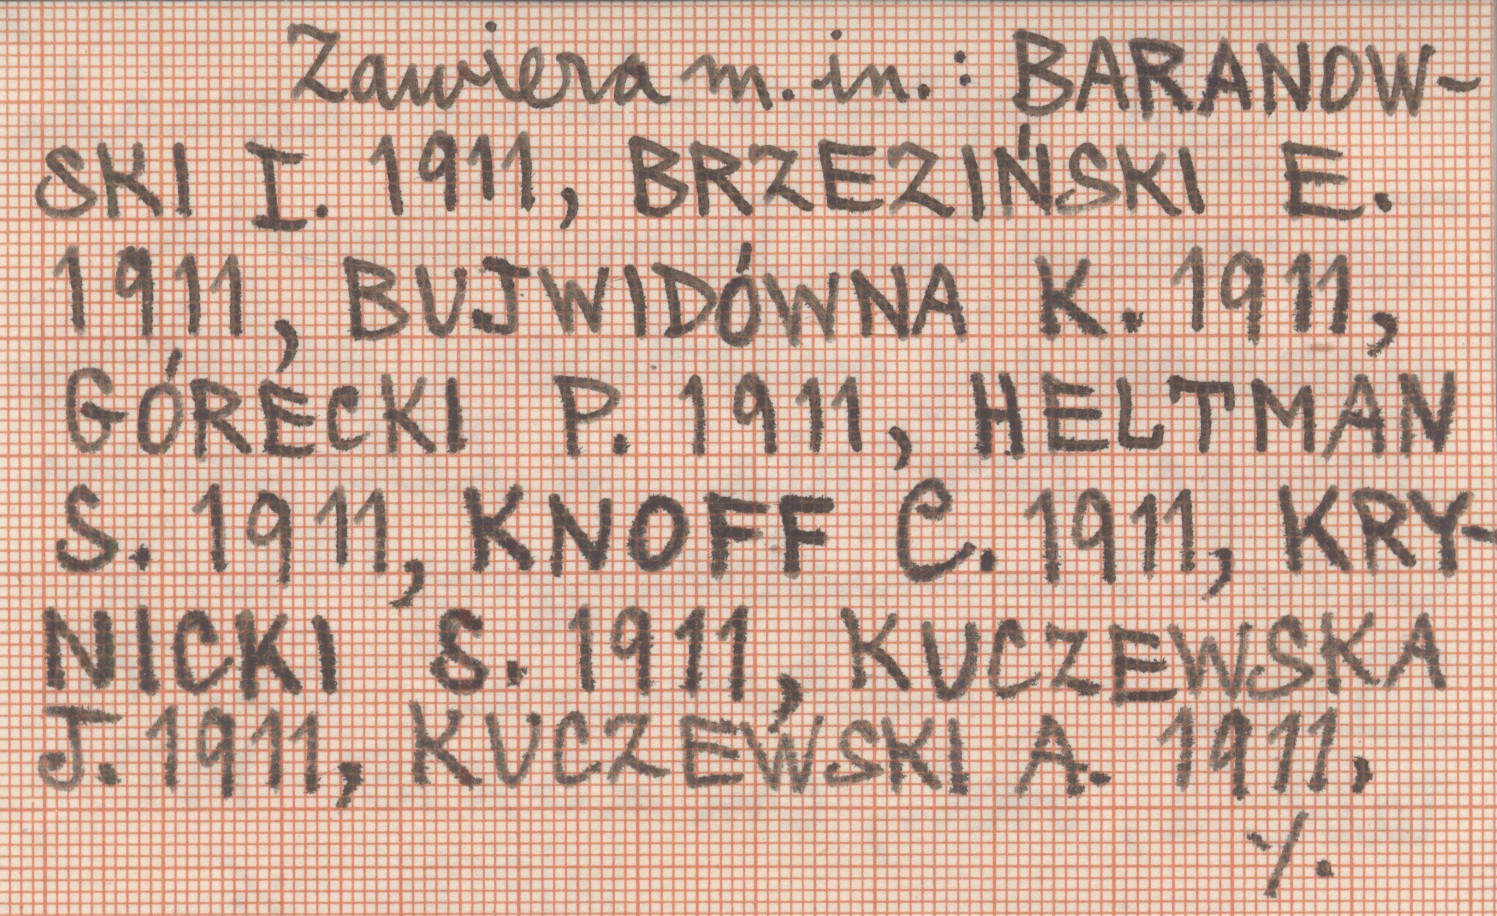 Zawiera m. in.: BARANOW-
SKI I. 1911, BRZEZIŃSKI E.
1911, BUJWIDÓWNA K. 1911,
GÓRECKI P. 1911, HELTMAN
S. 1911, KNOFF C. 1911, KRY-
NICKI S. 1911, KUCZEWSKA
J. 1911, KUCZEWSKI A. 1911,
./.